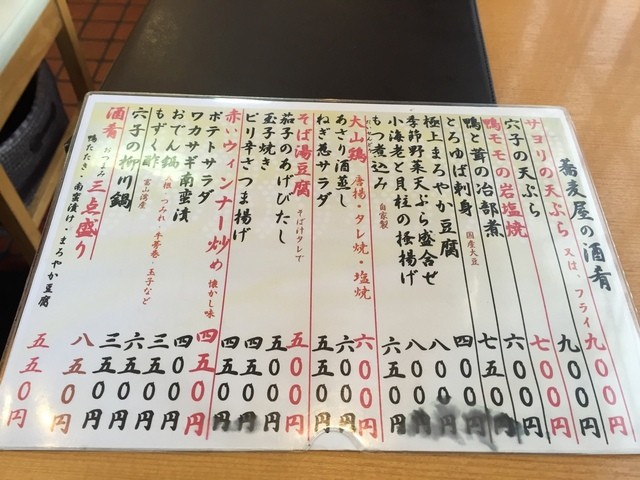 蕎麦屋の酒肴
サヨリの天ぷら 又は、フライ 九〇〇円
穴子の天ぷら 九〇〇円
鴨モモの岩塩焼 七〇〇円
鴨と茸の冶部煮 六〇〇円
とろゆば刺身 国産大豆 七五〇円
極上まろやか豆腐 四〇〇円
季節野菜天ぷら盛合せ 八〇〇円
小海老と貝柱の掻揚げ 八〇〇円
もつ煮込み 自家製 六五〇円
大山鶏 唐揚・タレ焼・塩焼 六〇〇円
あさり酒蒸し 六〇〇円
ねぎ葱サラダ 五五〇円
そば湯豆腐 そばけタレで 五〇〇円
茄子のあげびたし 五〇〇円
玉子焼き 四五〇円
ピリ辛さつま揚げ 四五〇円
赤いウィンナー炒め 懐かし味 四五〇円
ポテトサラダ 四〇〇円
ワカサギ南蛮漬 三五〇円
おでん鍋 大根・つみれ・牛蒡巻・玉子など 六五〇円
もずく酢 富山湾産 三五〇円
穴子の柳川鍋 八五〇円
酒肴 おつまみ 三点盛り 五五〇円
鴨たたき・南蛮漬け・まろやか豆腐